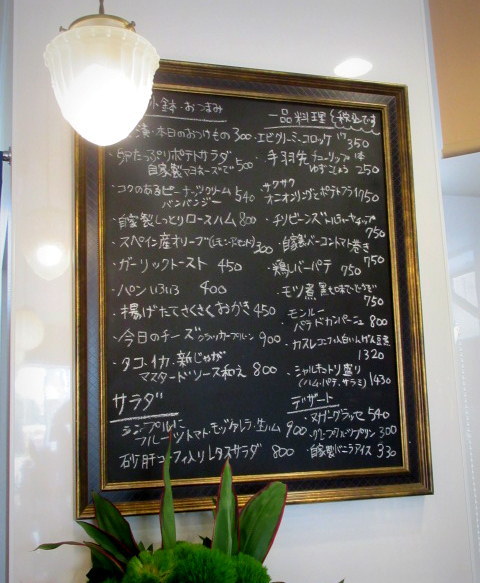 小鉢・おつまみ
漬・本日のおつけもの 300
・卵たっぷりポテトサラダ
自家製マヨネーズで 500
・コクのあるピーナッツクリーム
バンバンジー 540
・自家製しっとりロースハム 800
・スペイン産オリーブ 300
・ガーリックトースト 450
・パンいろいろ 400
・揚げたてさくさくおかき 450
・今日のチーズ 900
・タコ、イカ、新じゃが
マスタードソース和え 800
サラダ
シンプルに
フルーツトマト・モッツァレラ・生ハム 900
砂肝コンフィ入りレタスサラダ 800
一品料理 税込です
・エビクリーミーコロッケ 350
・手羽先
ゆずこしょう 250
・サクサク
オニオンリングとポテトフライ 750
・チリビーンズ
750
・自家製ベーコントマト巻き
750
・鶏レバーパテ 750
・モツ煮
750
・モンルー
パテドカンパーニュ 800
・カスレ
1320
・シャルキュトリ盛り
(ハム・パテ・サラミ) 1430
デザート
・ヌガーグラッセ 540
・グレープフルーツプリン 300
・自家製バニラアイス 330